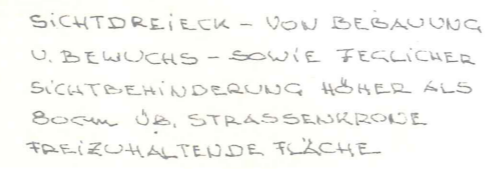 SICHTDREIECK - VON BEBAUUNG
U. BEWUCHS - SOWIE JEGLICHER
SICHTBEHINDERUNG HÖHER ALS
80cm ÜB. STRASSENKRONE
FREIZUHALTENDE FLÄCHE